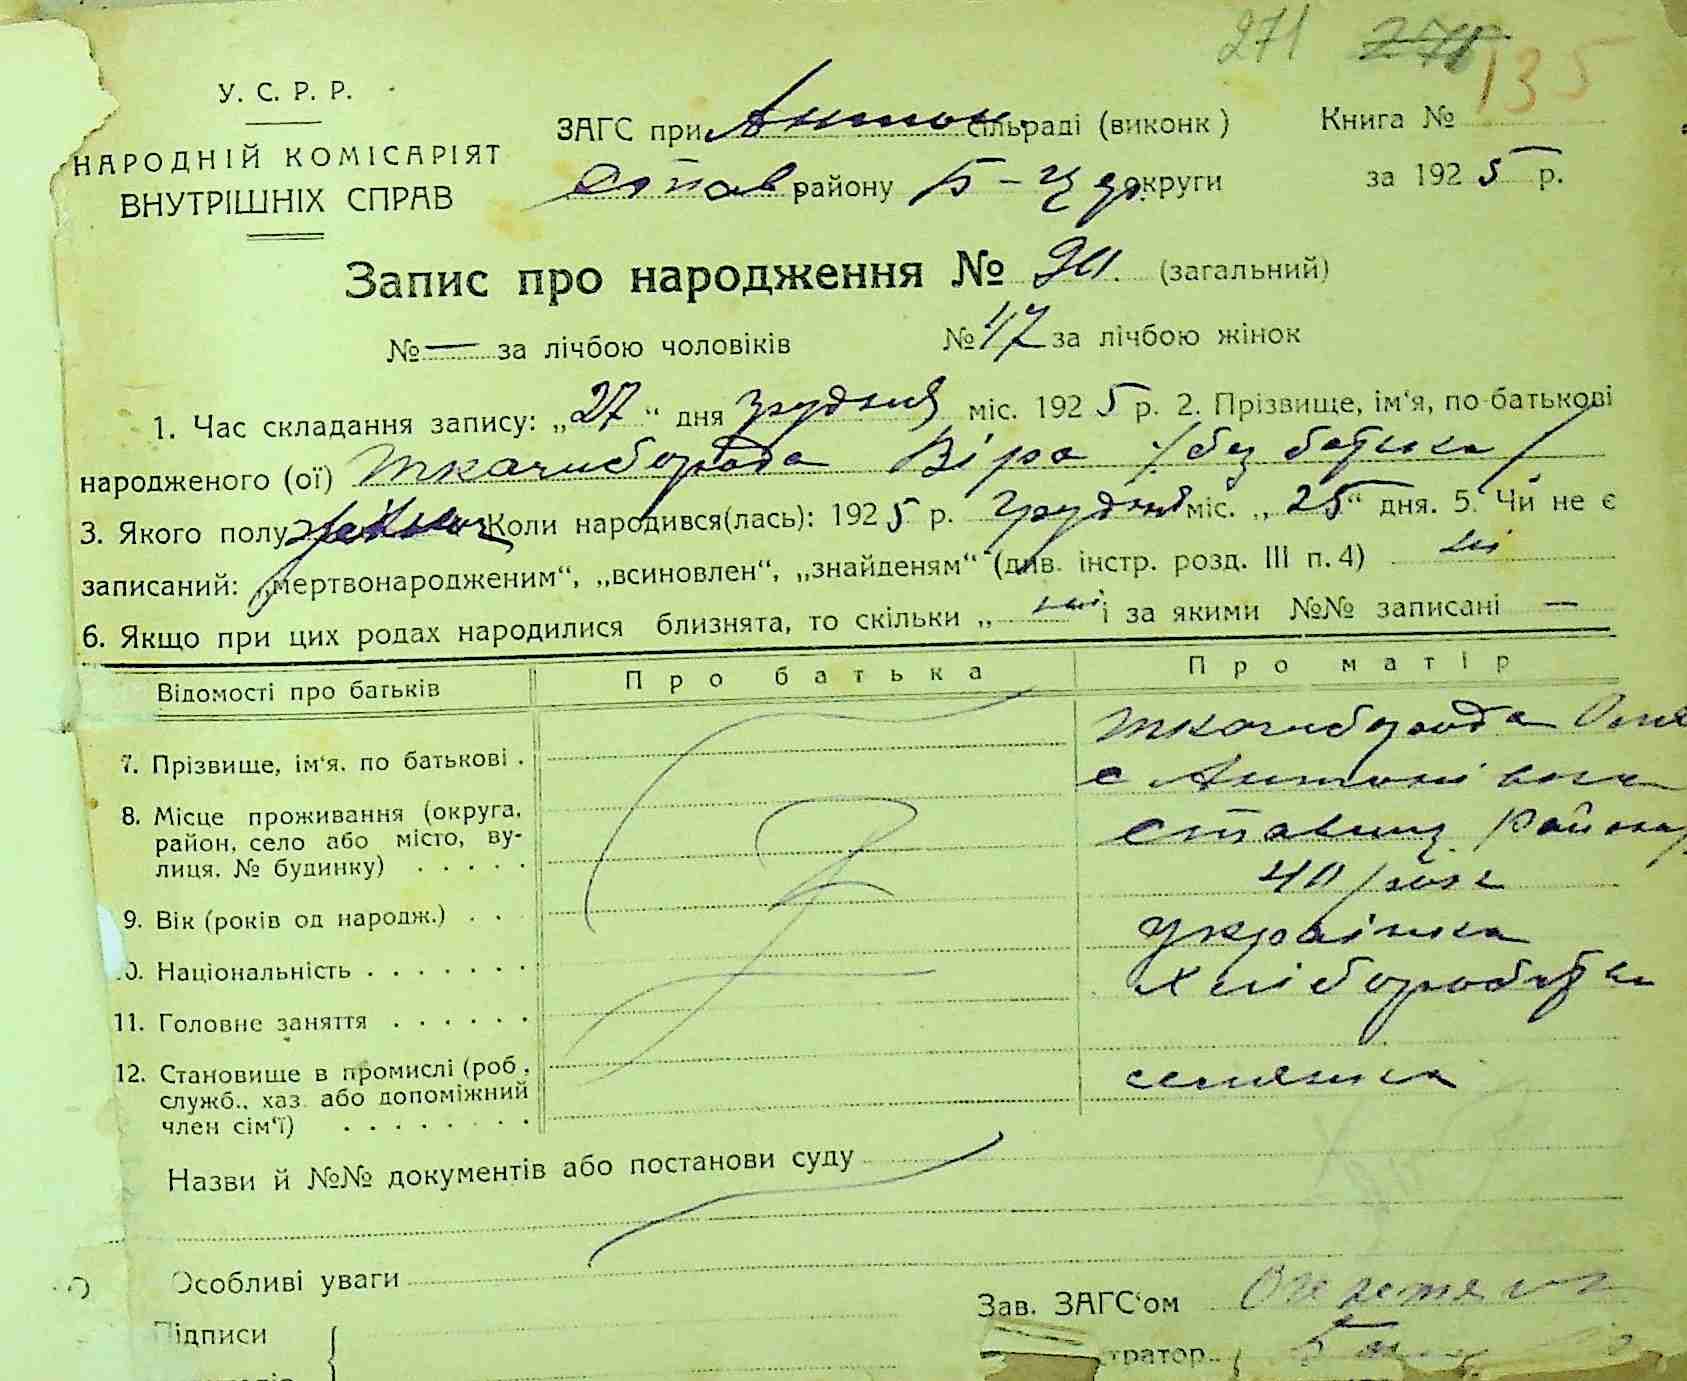 271 135
У. С. Р. Р.
НАРОДНІЙ КОМІСАРІЯТ
ВНУТРІШНІХ СПРАВ
ЗАГС при Антон. сільраді (виконк) Книга №
Став. району Б-Цер. округи за 1925 р.
Запис про народження № 90. (загальний)
№ — за лічбою чоловіків № 47 за лічбою жінок
1. Час складання запису: „27“ дня грудня міс. 1925 р. 2. Прізвище, ім‘я, по-батькові
народженого (ої) Ткачиборода Віра /без батька/
3. Якого полу Коли народився(лась): 1925 р. Грудня міс. „25“ дня. 5. Чи не є
записаний: „мертвонародженим“, „всиновлен“, „знайденям“ (див. інстр. розд. III п. 4) ні
6. Якщо при цих родах народилися близнята, то скільки „ ні і за якими №№ записані —
Відомості про батьків Про батька Про матір
7. Прізвище, ім‘я, по батькові . Ткачиборода
8. Місце проживання (округа, с Антонівка
район, село або місто, ву- Ставищ. Району
лиця, № будинку) . . . . .
9. Вік (років од народж.) . . 40 років
10. Національність . . . . . . . українка
11. Головне заняття . . . . . . хліборобство
12. Становище в промислі (роб.,
служб., хаз. або допоміжний селянка
член сім‘ї) . . . . . . . .
Назви й №№ документів або постанови суду
Особливі уваги
Зав. ЗАГС‘ом
Підписи
тратор